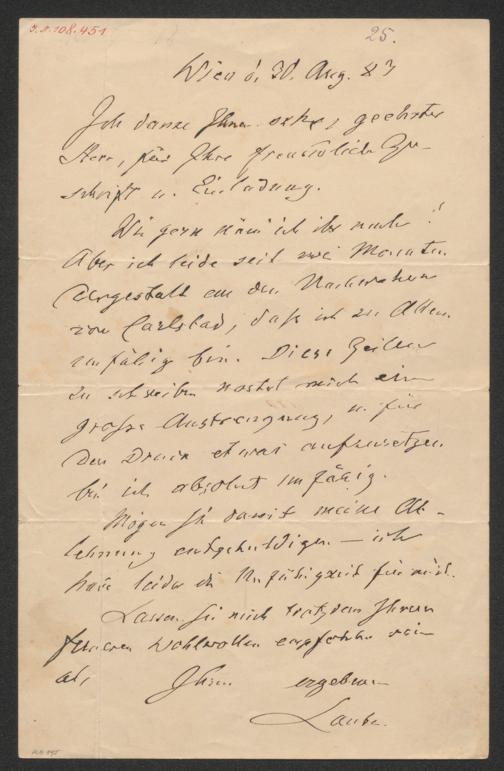 J.N. 108.451
25.
Wien d. 30. Aug. 83
Ich danke Ihnen sehr, geehrter
Herr, für Ihre freundliche Zu-
schrift u. Einladung.
Wie gern käm' ich ihr nach!
Aber ich leide seit zwei Monaten
dergestalt an den Nachwehen
von Carlsbad, daß ich zu Allem
unfähig bin. Diese Zeilen
zu schreiben kostet mich eine
große Anstrengung, u. für
den Druck etwas aufzusetzen
bin ich absolut unfähig.
Mögen Sie damit meine Ab-
lehnung entschuldigen – ich
habe leider die Unfähigkeit für mich.
Lassen Sie mich trotzdem Ihrem
ferneren Wohlwollen empfohlen sein
als Ihren ergebenen
Laube.